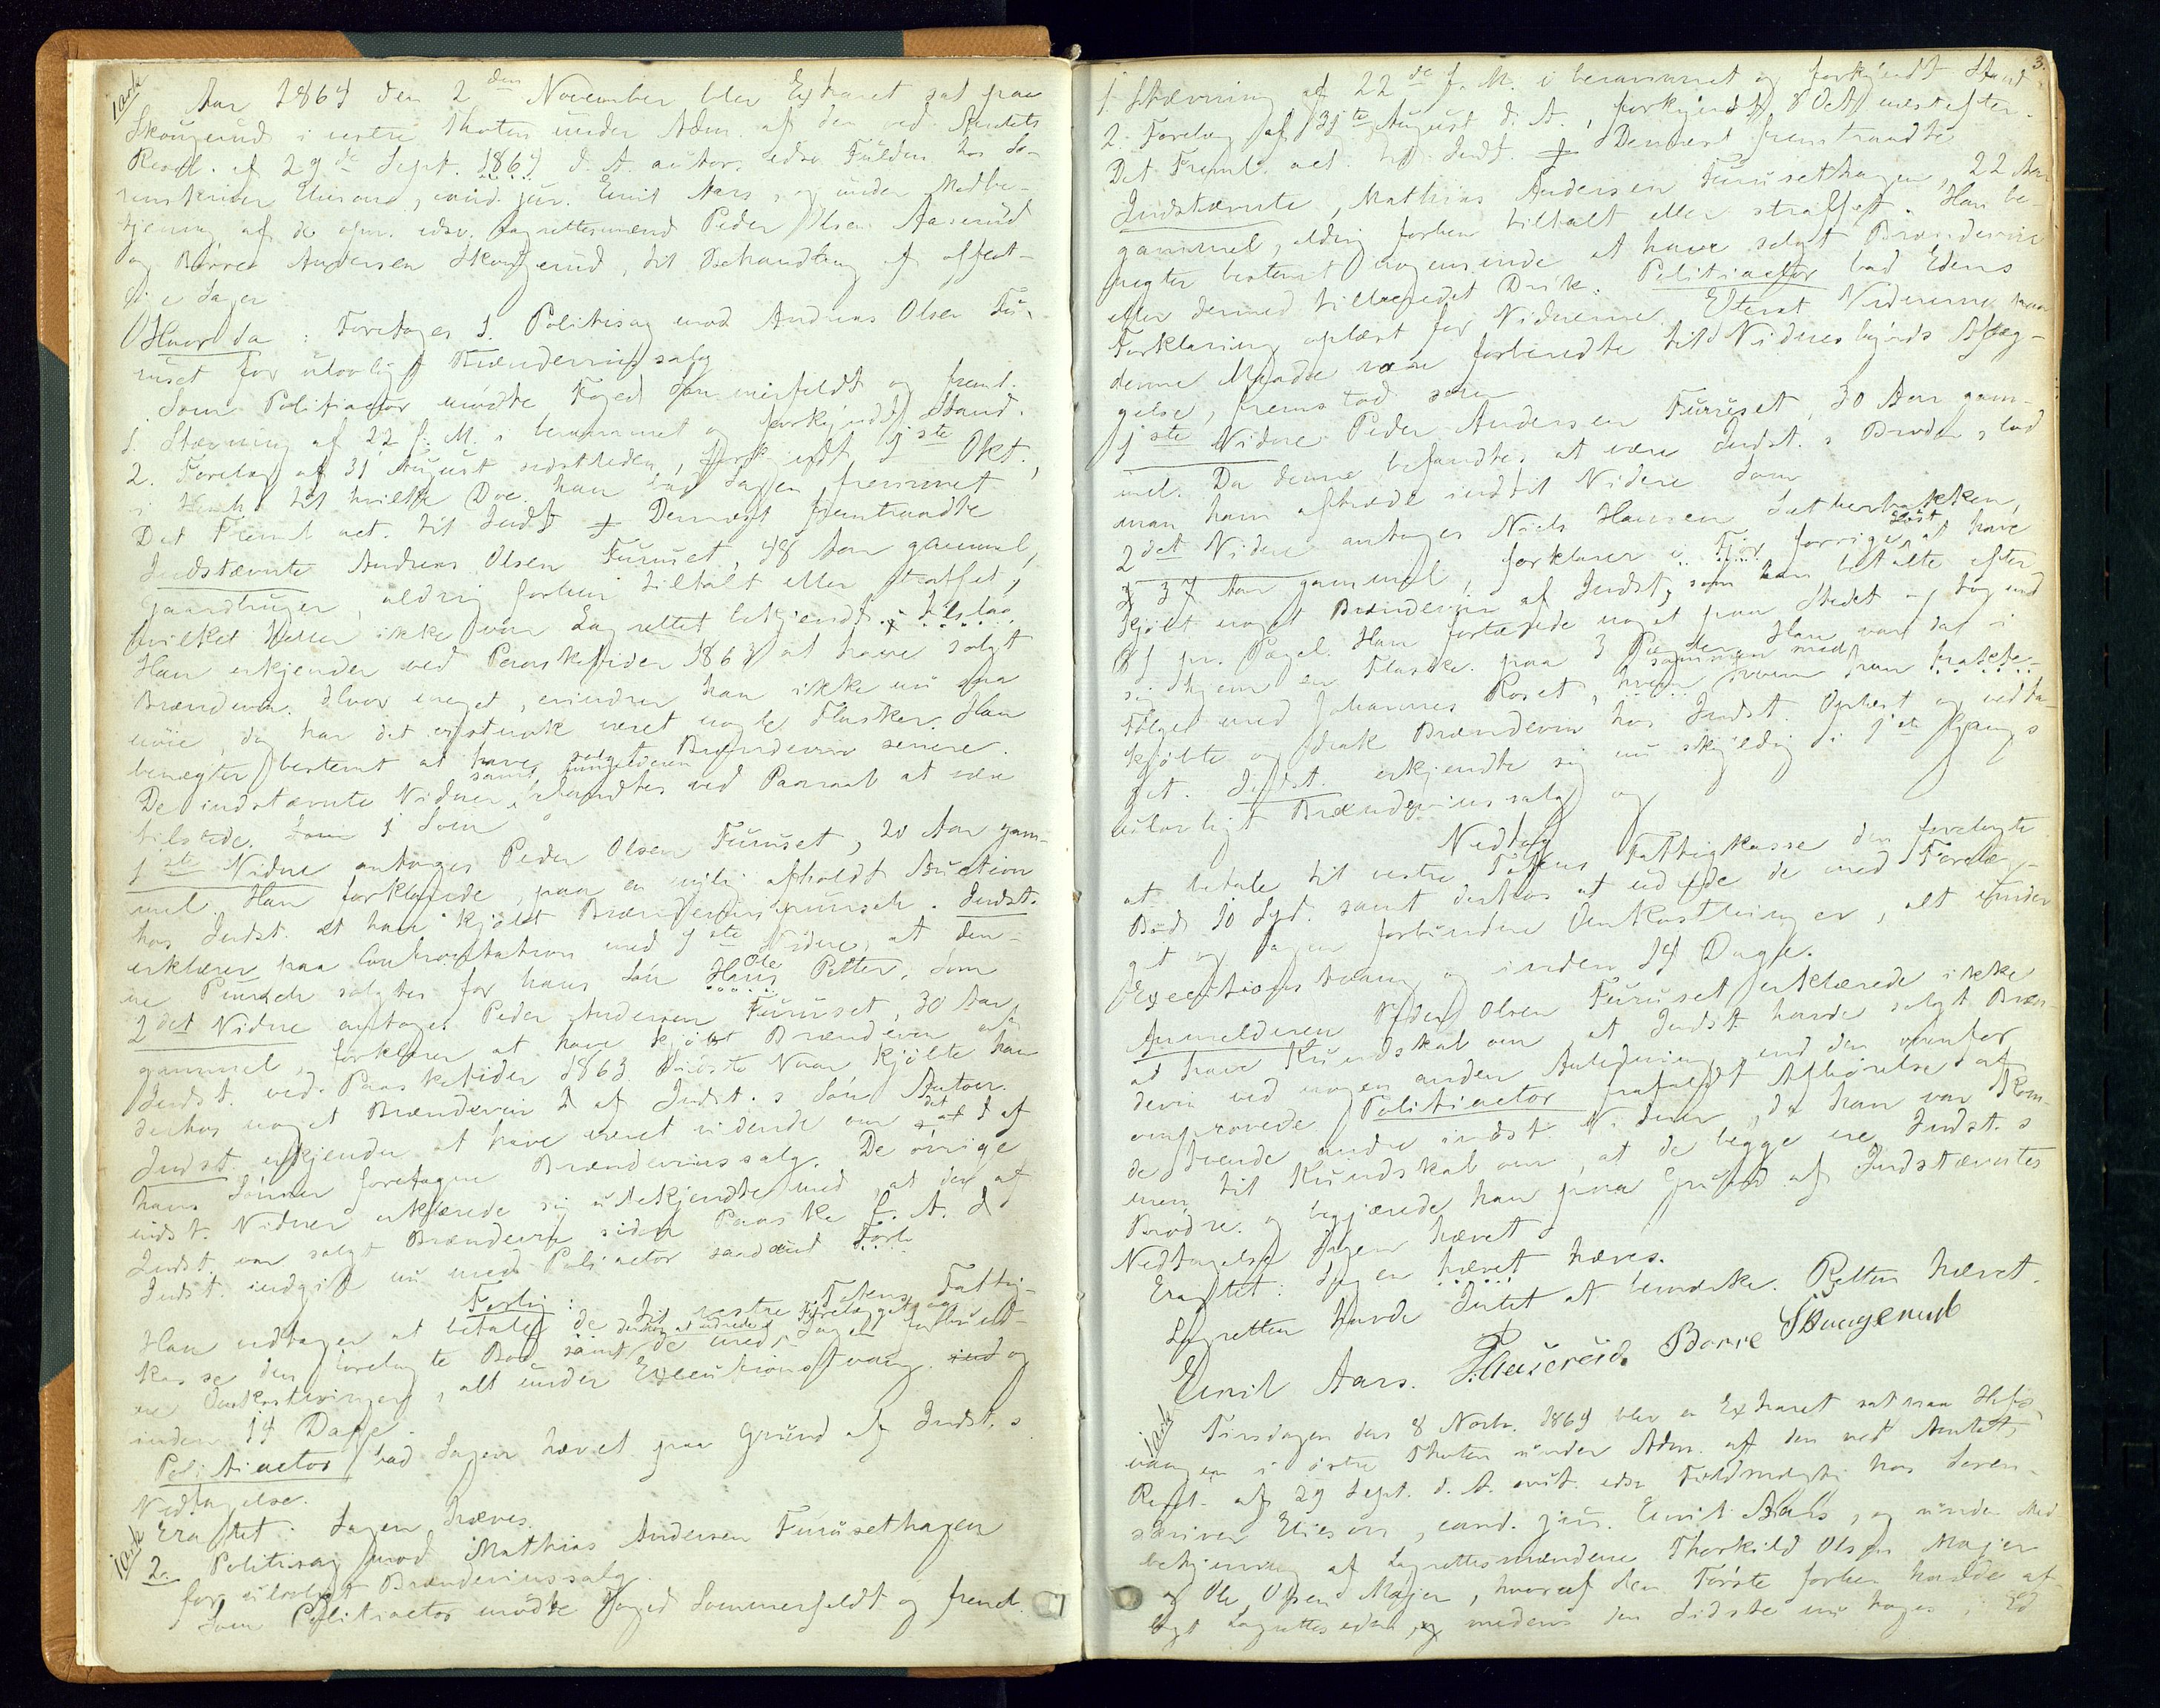 Aar 1864 den 2den November blev Extraret sat paa
Skougerud i vestre Thoten under Adm. af den ved Amtets
Resol. af 29de Sept. 1864 d. A. autor. edsv. Fuldm. hos So-
renskriver Elieson, cand. jur. Emil Aars, og under Medbe-
tjening af de opn. edsv. Lagrettesmænd Peder Olsen Aaserud
og Børre Andersen Skougerud, til Behandling af offent-
lige Sager
Hvorda: Foretages 1. Politisag mod Andreas Olsen Fu-
ruset for ulovligt Brændeviinssalg
Som Politiactor mødte Foged Sommerfeldt og freml.
1. Stævning af 22 f. M. i berammet og forkyndt Stand.
2. Forelæg af 31 August sidstleden, forkyndt 1ste Okt.,
i Henh. til hvilke Doc. han bad Sagen fremmet
Det Freml. act. til Indt. Dernæst fremtraadte
Indstævnte Andreas Olsen Furuset, 48 Aar gammel,
Gaardbruger, aldrig forhen tiltalt eller straffet,
hvilket heller ikke var Lagrettet bekjendt.
Han erkjender ved Paasketider 1863 at have solgt
Brændeviin. Hvor meget, erindrer han ikke nu saa
nøie, da har det vistnok været nogle Flasker. Han
benægter bestemt at have solgt Brændeviin senere.
De indstævnte Vidner, samt Anmelderen befandtes ved Paaraab at være
tilstede. Som
1ste Vidne antoges Peder Olsen Furuset, 20 Aar gam-
mel. Han forklarede, paa en nylig afholdt Auction
hos Indst. at han kjøbt Brændeviinspunsch. Indst.
erklærer paa Confrontation med 1ste Vidne, at den-
ne Punsch solgtes for hans Søn Hans Ole Petter. Som
2det Vidne antoges Peder Andersen Furuset, 30 Aar
gammel, forklarer at have kjøbt Brændeviin af
Indst. ved Paasketider 1863. Sidste Vaar kjøbte han
derhos noget Brændeviin af Indst.s Søn Anton.
Indst. erkjender at have været vidende om det af
hans Sønner foretagne Brændeviinssalg. De øvrige
indst. Vidner erklærede sig ubekjendte med, at der af
Indst. var solgt Brændeviin siden Paaske f. A.
Indst. indgik nu med Poliactor saadant Forl.
Forlig:
Han vedtager at betale til vestre Totens Fattig-
kasse den forelagte Bod samt derhos at udrede de med Forelægget og Sagen forbund-
ne Omkostninger, alt under Executionstvang og
inden 14 Dage.
Politiactor bad Sagen hævet paa Grund af Indst.s
Vedtagelse.
Eragtet: Sagen hæves.
2. Politisag mod Mathias Andersen Furusethagen
for ulovligt Brændeviinssalg.
Som Politiactor mødte Foged Sommerfeldt og freml.
3.
1 Stævning af 22de f. M. i berammet og forkyndt Stand
2. Forelæg af 31te August d. A., forkyndt 8 Oct. næstefter.
Det Freml. act. til Indt. Dernæst fremtraadte
Indstævnte, Mathias Andersen Furusethagen, 22 Aar
gammel, aldrig forhen tiltalt eller straffet. Han be-
negter bestemt nogensinde at have solgt Brændeviin
eller dermed tillavet Drik. Politiactor bad Edens
Forklaring oplæst for Vidnerne. Efterat Vidnerne paa
denne Maade vare forberedte til Vidnesbyrds Aflæg-
gelse, fremstod som
1ste Vidne Peder Andersen Furuset, 30 Aar gam-
mel. Da denne befandtes at være Indst.s Broder, lod
man ham aftræde indtil Videre. Som
2det Vidne antoges Niels Hansen Sætherbakken,
37 Aar gammel, forklarer i forrige Høst at have
kjøbt noget Brændeviin af Indst., som han betalte efter
8 ß pr. Pægel. Han fortærede noget paa Stedet og tog med
sig hjem en Flaske paa 3 Pægler. Han var da i
Følge med Johannes Roset, sammen med hvem han
kjøbte og drak Brændeviin hos Indst. Oplæst og vedta-
get. Indst. erkjendte sig nu skyldig i 1ste Gangs
ulovligt Brændeviinssalg og
Vedtog
at betale til vestre Totens Fattigkasse den forelagte
Bod 10 Spd. samt derhos at udrede de med Forelæg-
get og Sagen forbundne Omkostninger, alt under
Executionstvang og inden 14 Dage.
Anmelderen Peder Olsen Furuset erklærede ikke
at have Kundskab om at Indst. havde solgt Bræn-
deviin ved nogen anden Anledning end den ovenfor
omprovede. Politiactor frafaldt Afhørelse af
de tvende andre indst. Vidner, da han var kom-
men til Kundskab om, at de begge ere Indst.s
Brødre og begjærede han paa Grund af Indstævntes
Vedtagelse Sagen hævet
Eragtet: Sagen hævet hæves.
Lagretten havde Intet at bemærke. Retten hævet.
Emil Aars. P. Aaserud. Borre Skougerud
Tirsdagen den 8 Novb. 1864 blev en Extraret sat paa Hofs-
vangen i østre Thoten under Adm. af den ved Amtets
Resol. af 29 Sept. d. A. aut. edsv. Fuldmægtig hos Soren-
skriver Elieson, cand. jur. Emil Aars, og under Med
betjening af Lagrettesmændene Thorkild Olsen Majer
og Ole Olsen Majer, hvoraf den Første forhen havde af-
lagt Lagrettesed, medens den Sidste nu toges i Ed